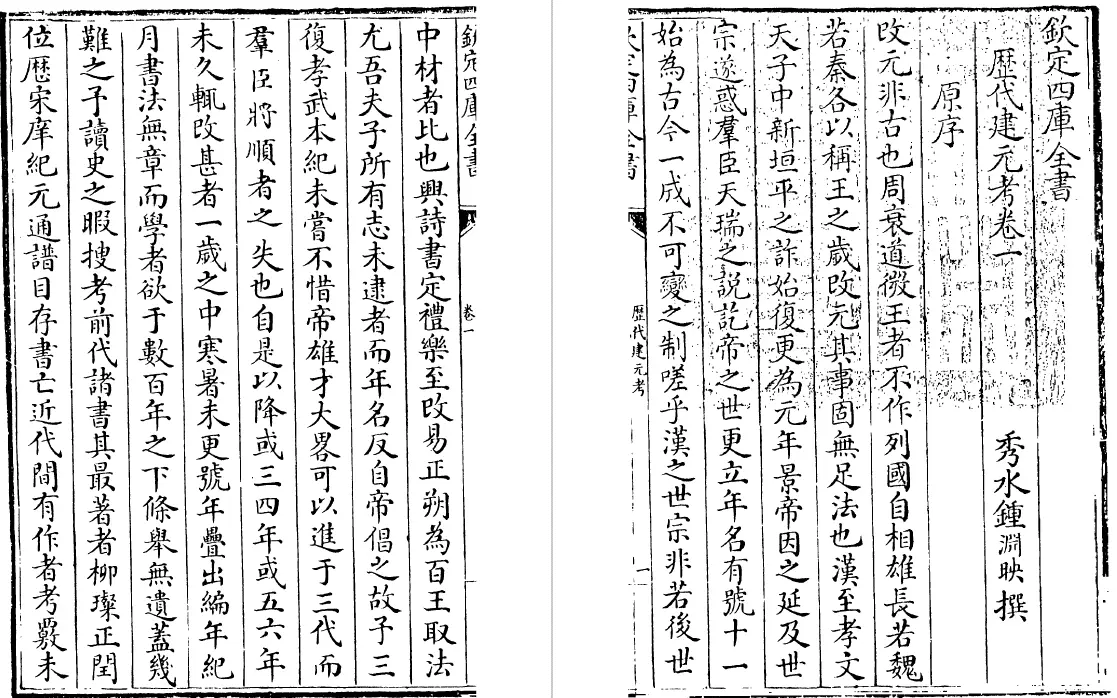 欽定四庫全書
歷代建元考卷一
秀水鍾淵映撰
原序
改元非古也周衰道微王者不作列國自相雄長若魏
若秦各以稱王之歲改元其事固無足法也漢至孝文
天子中新垣平之詐始復更為元年景帝因之延及世
宗遂惑羣臣天瑞之説訖帝之世更立年名有號十一
始為古今一成不可變之制嗟乎漢之世宗非若後世
歷代建元考
一
欽定四庫全書
卷一
中材者比也興詩書定禮樂至改易正朔為百王取法
尤吾夫子所有志未逮者而年名反自帝倡之故予三
復孝武本紀未嘗不惜帝雄才大畧可以進于三代而
羣臣將順者之失也自是以降或三四年或五六年
未久輒改甚者一歲之中寒暑未更號年疊出編年紀
月書法無章而學者欲于數百年之下條舉無遺蓋幾
難之予讀史之暇搜考前代諸書其最著者柳璨正閏
位歴宋庠紀元通譜目存書亡近代間有作者考覈未